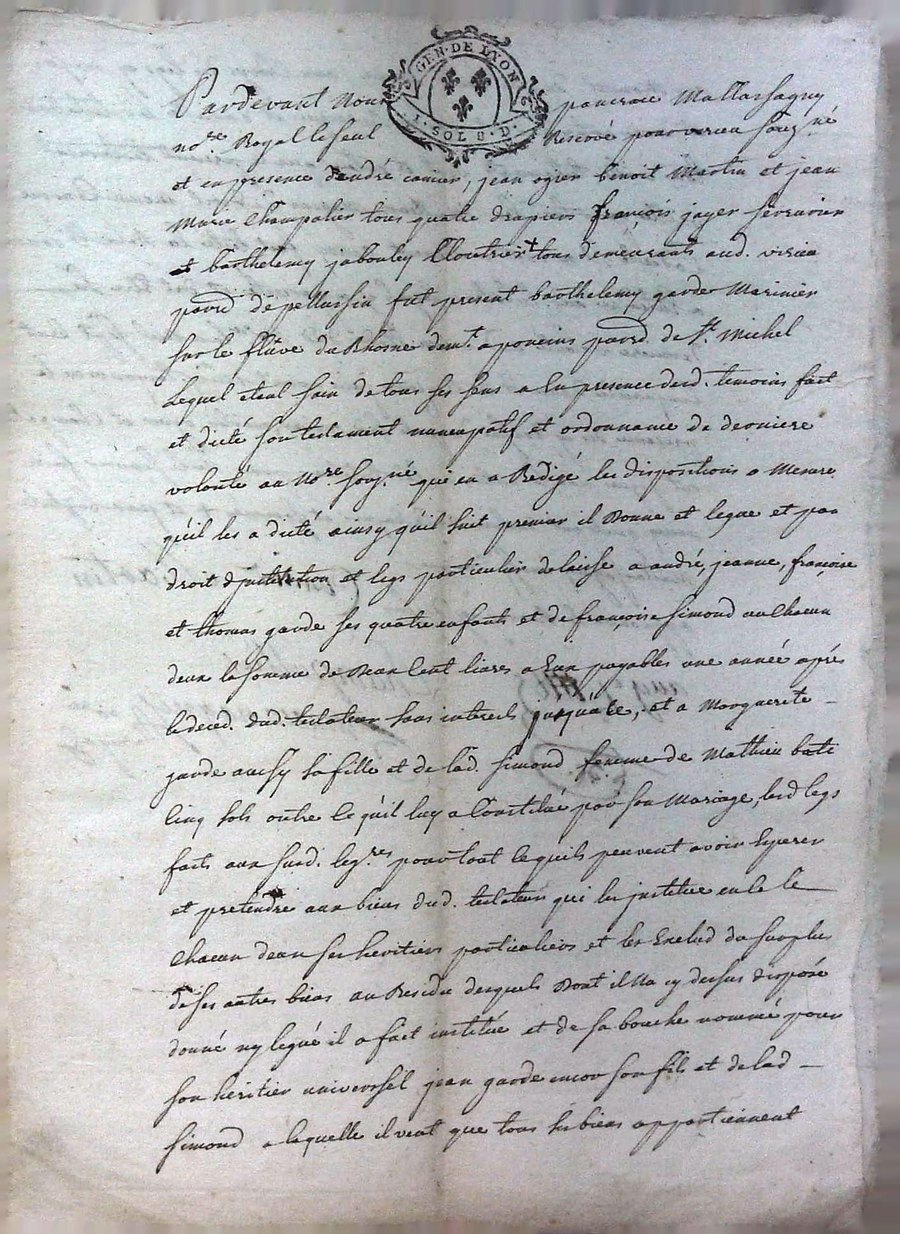 GEN. DE LYON
1. SOL 8. D.
Pardevant Nous pancrace Mallassagny
no.re Royal le seul Reservé pour verieu sousg.né
et en presence d'andré camier, jean ogier benoit Martin et jean
Marie Champalier tous quatre drapiers françois jayer serrurier
et barthelemy jabouley Cloutrier + tous demeurants aud. virieu
parr.d de pellussin fut present barthelemy garde Marinier
sur le fluve du Rhosne dem.t a poncins parr.d de S.t Michel
Lequel etant sain de tous ses sens a En presence desd. temoins fait
et dicté son testament nuncupatif et ordonnance de derniere
volonté au No.re sousg.né qui en a Redigé les dispositions a Mesure
qu'il les a dicté ainsy qu'il suit premier il Donne et legue et par
droit d'jnstitution et legs particulier delaisse a andré, jeanne, françoise
et thomas garde ses quatre enfants et de françoise Simond au Chacun
deux la somme de Cent livres a Eux payables une année aprés
le deced. dud. testateur sans interets jusqu'a ce, et a Marguerite
garde aussy sa fille et de lad. Simond femme de Mathieu bati
Cinq sols outre ce qu'il luy a Constitué par son Mariage, lesd legs
faits aux susd. leg.res pour tout ce qu'ils peuvent avoir Esperer
et pretendre aux biens dud. testateur qui les jnstitue en ce le
Chacun deux ses heritiers particuliers et les Exclud du surplus
de ses autres biens au Residu desquels Dont il Na cy dessus disposé
donné ny legué il a fait institué et de sa bouche nommé pour
son heritier universel jean garde encor son fils et de lad
Simond a laquelle il veut que tous ses biens appartiennent